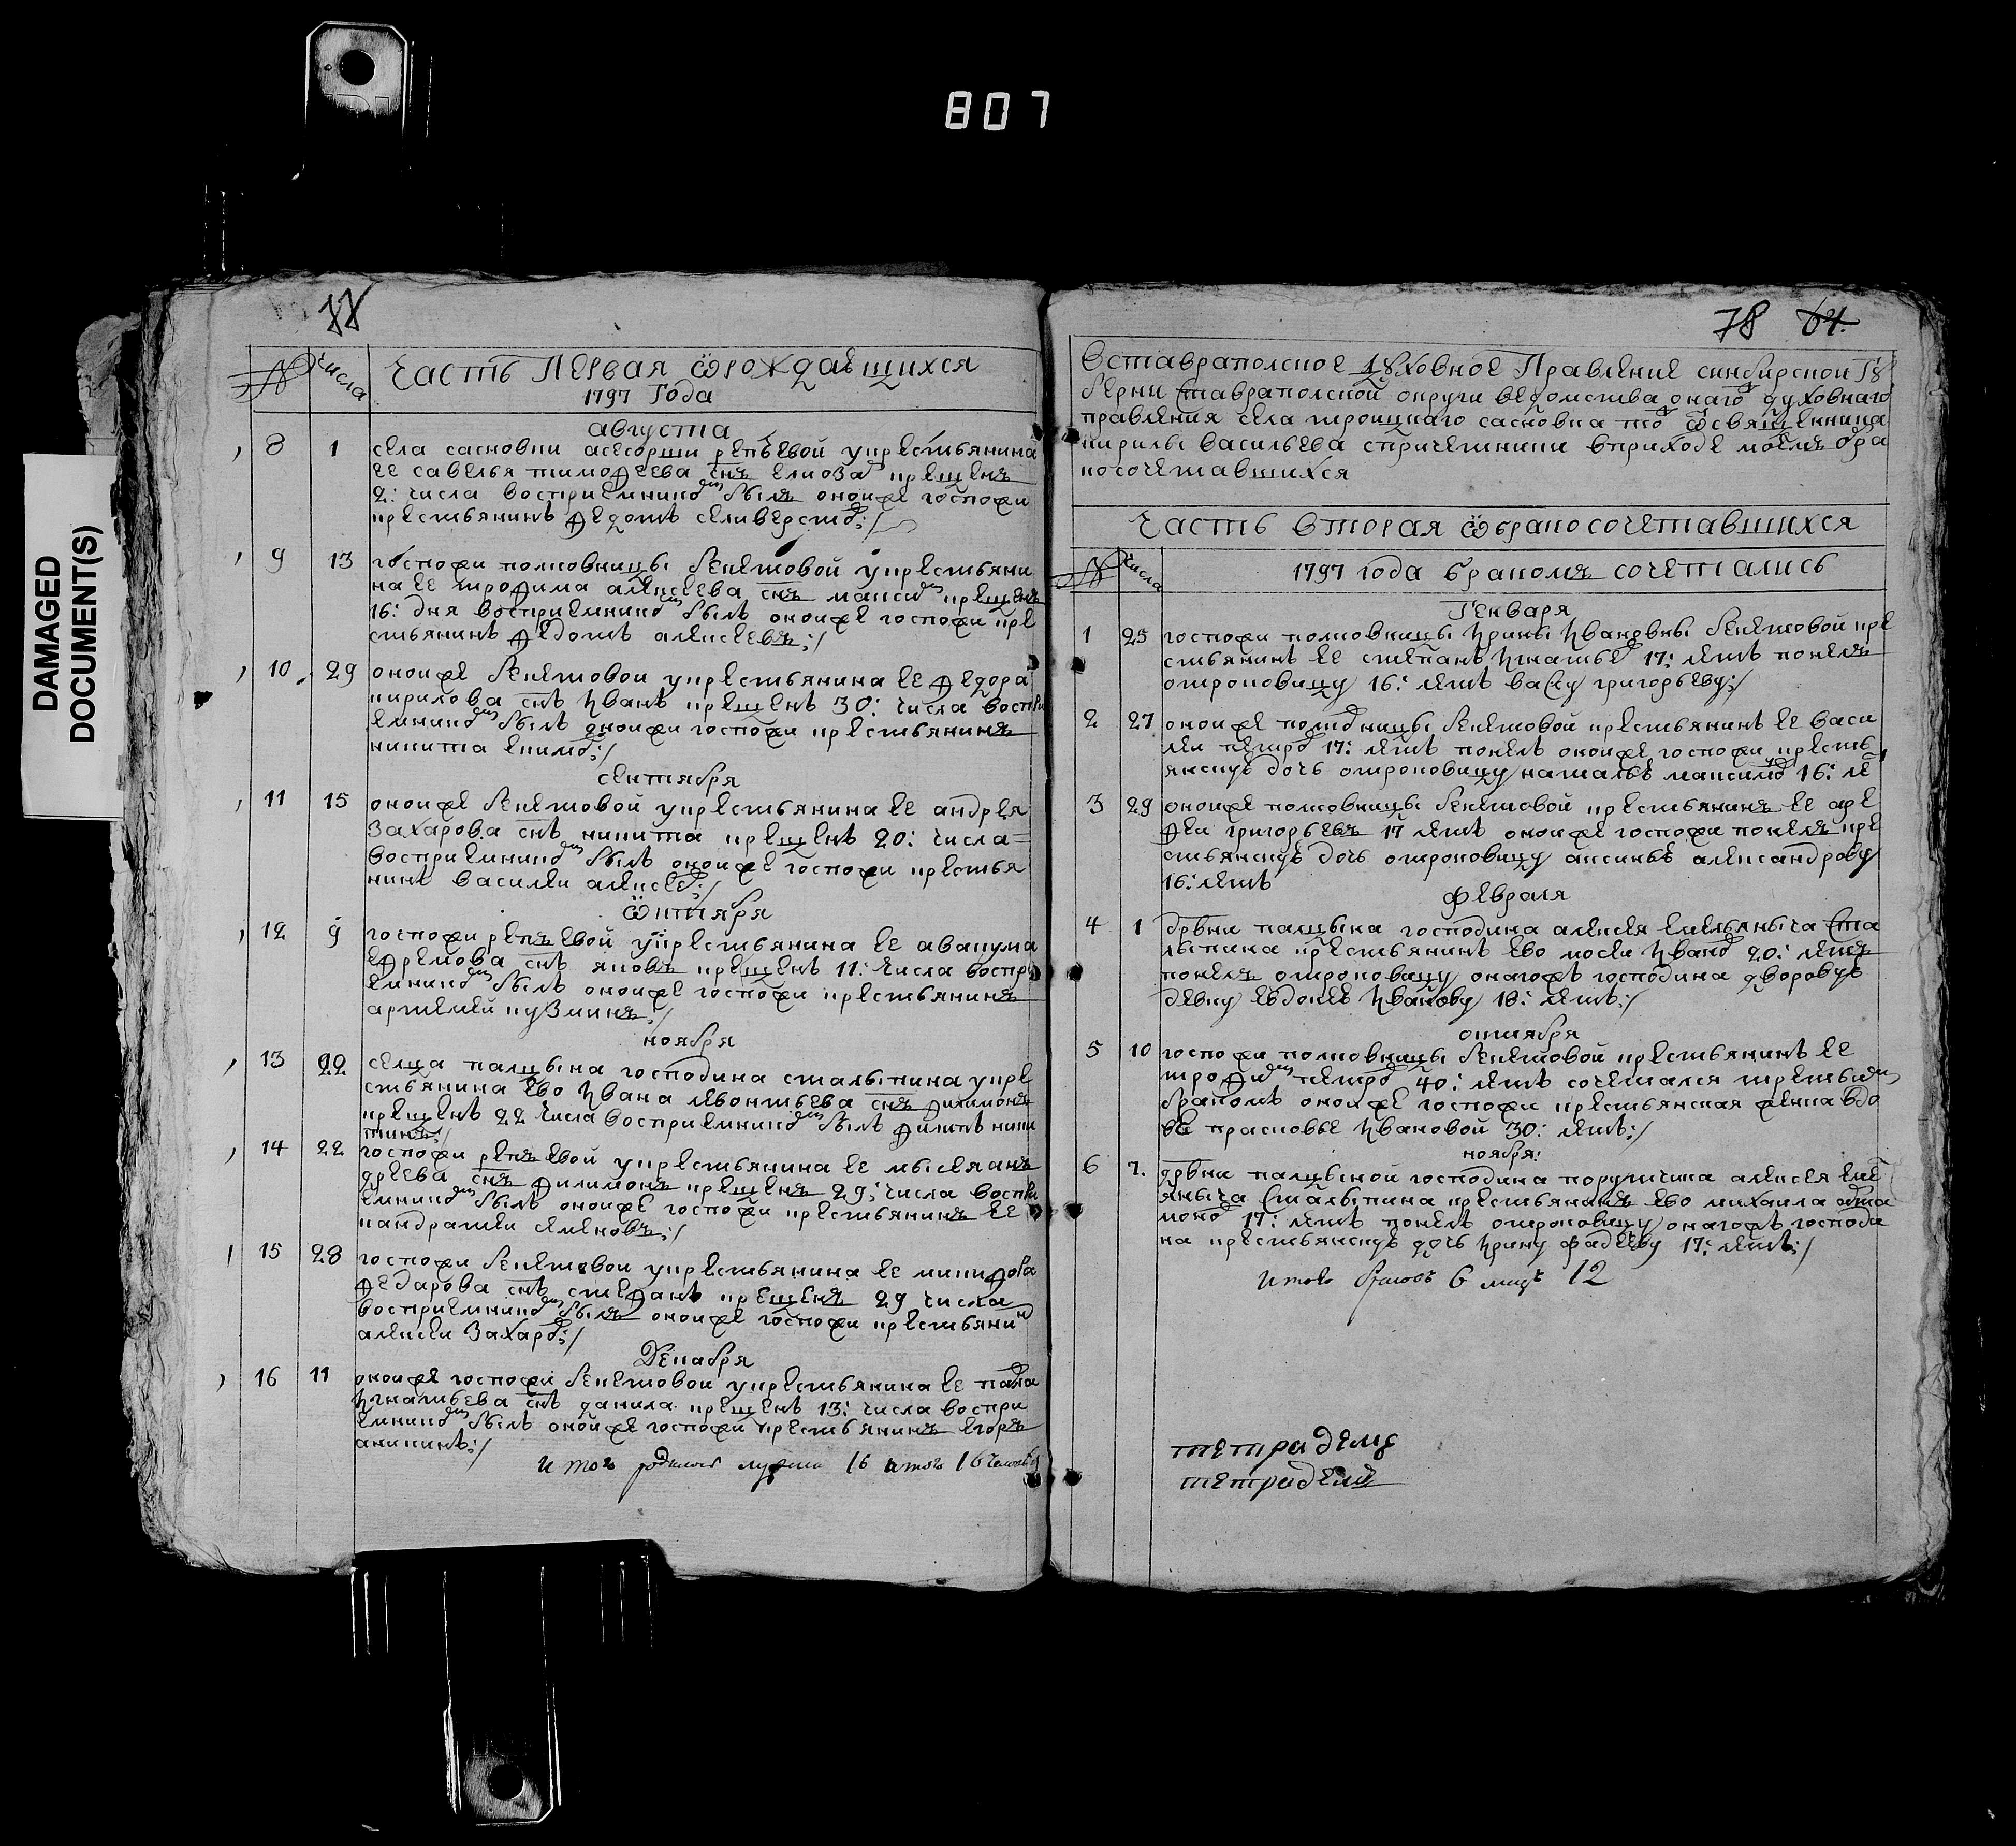 807
DAMAGED
DOCUMENT(S)
77
№ Числа Часть Первая ѿрождаещихся
1797 Года
августа
8 1 села сасновки асесорши репьевой укрестьянина
ее савелья тимофеева снъ крещенъ
2: числа восприемником былъ оной же госпожи
крестьянинъ федотъ селиверстов:/
9 13 госпожи полковницы бекетовой укрестьяни
на ее трофима алексеева снъ максим крещенъ
16: дня восприемником былъ оной же госпожи кре
стьянинъ федотъ алексеевъ:/
10 29 оной же бекетовой укрестьянина ее федора
кирилова снъ иванъ крещенъ 30: числа воспри
емником былъ оной жи госпожи крестьянинъ
никита екимов:/
сентября
11 15 оной же бекетовой укрестьянина ее андрея
захарова снъ никита крещенъ 20: числа=
восприемником былъ оной же госпожи крестья
нинъ василеи алексеев:/
ѿктября
12 9 госпожи репьевой укрестьянина ее авакума
ефремова снъ яковъ крещенъ 11: числа воспри
емником былъ оной же госпожи крестьянинъ
артемей кузминъ:/
ноября
13 22 селца палцына господина сталыпина укре
стьянина ево ивана левонтьева снъ филимонъ
крещенъ 22 числа восприемником былъ филипъ ники
тинъ:/
14 22 госпожи репьевой укрестьянина ее мысея анъ
дреева снъ филимонъ крещенъ 29: числа воспри
емником былъ оной же госпожи крестьянинъ ее
кандратеи семеновъ:/
15 28 госпожи бекетовои укрестьянина ее никифора
федарова снъ стефанъ крещенъ 29 числа
восприемником былъ оной же госпожи крестьянин
алексеи захаров:/
Декабря
16 11 оной же госпожи бекетовои укрестьянина ее павла
игнатьева снъ данила крещенъ 13: числа воспри
емником былъ оной же госпожи крестьянинъ егоръ
аникинъ:/
итого родилось мужеска 16 итого 16 человек
78 64.
Вставрапольское духовное Правление синбирской Гу
берни Ставрапольской округи ведомства онаго духовнаго
правления села троицкаго сасновка тож ѿсвященника
кирилы васильева спричетники вприходе моемъ бра
косочетавшихся
Часть вторая ѿбракосочетавшихся
№ Числа 1797 года бракомъ сочетались
Генваря
1 25 госпожи полковницы ирины ивановны бекетовой кре
стьянинъ ее степанъ игнатьев 17: летъ понелъ
отроковицу 16: летъ васу григорьеву:/
2 27 оной же полковницы бекетовой крестьянинъ ее васи
леи петров 17: летъ понелъ оной же госпожи кресть
янскую дочь отроковицу наталью максимову 16: ле
3 29 оной же полковницы бекетовой крестьянинъ ее
феи григорьевъ 17 летъ оной же госпожи понелъ кре
стьянскую дочь отроковицу аксинью александрову
16: летъ
февраля
4 1 дрвни палцына господина алексея емельяныча Ста
лыпина крестьянинъ ево мосеи иванов 20: летъ
понелъ отроковицу онагожъ господина дворовую
девку евдокею иванову 18: летъ:/
октября
5 10 госпожи полковницы бекетовой крестьянинъ ее
трофим петров 40: летъ сочетался третьим
бракомъ оной же госпожи крестьянская женка вдо
ве прасковье ивановой 30: летъ:/
ноября:
6 7. дрвни палцыной господина поручика алексея емел
яныча Сталыпина крестьянинъ ево михаила
17: летъ понелъ отроковицу онагожъ господи
на крестьянскую дочь ирину фадееву 17: летъ:/
итого браковъ 6 лицъ 12